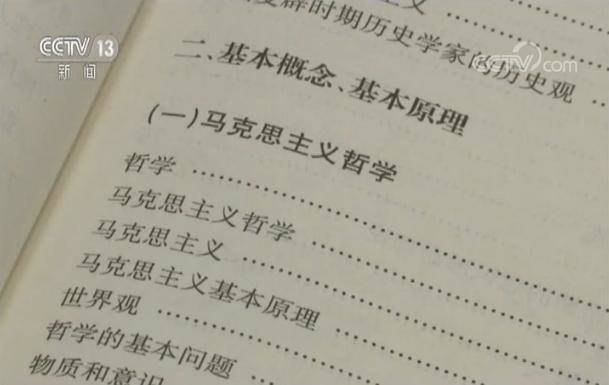 CCTV 13
新闻
CCTV.com
主义
复辟时期历史学家的历史观 ……
二、基本概念、基本原理
(一)马克思主义哲学
哲学 ……
马克思主义哲学 ……
马克思主义 ……
马克思主义基本原理 ……
世界观 ……
哲学的基本问题 ……
物质和意识 ……